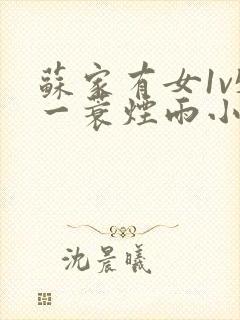 蘇家有女1v
一蓑煙雨小
沈晨曦